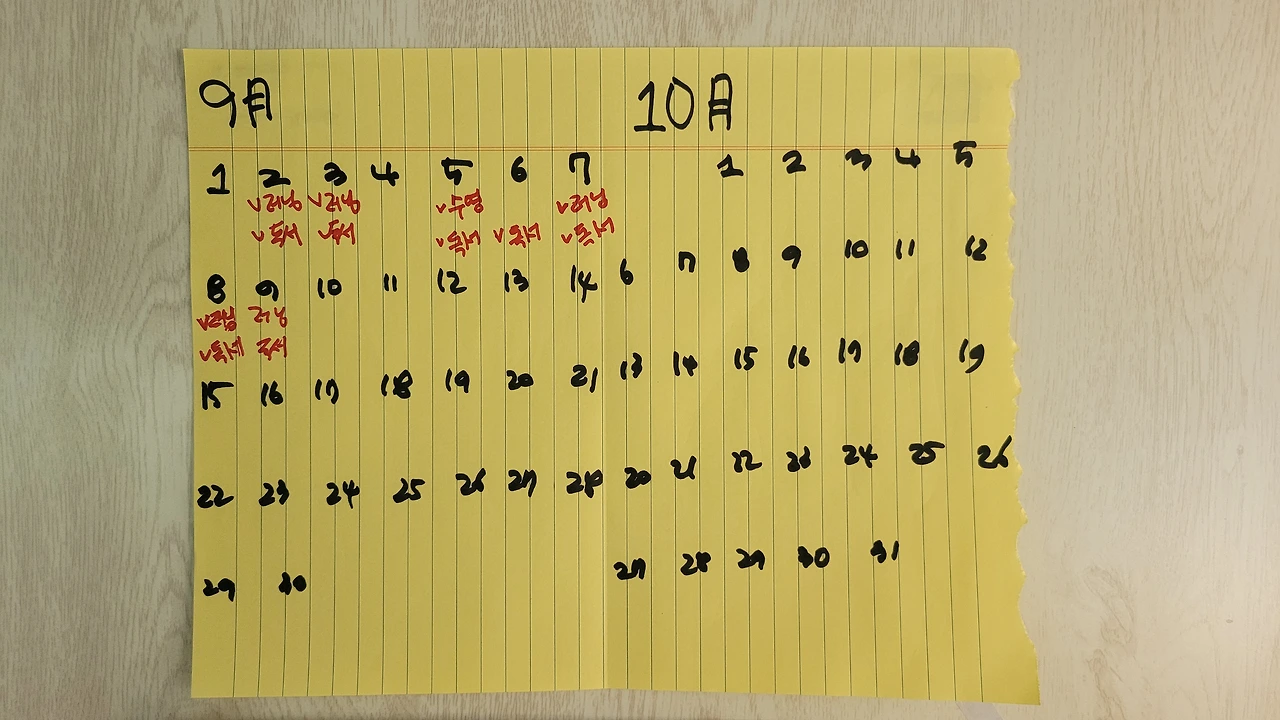 9月
1 2 3 4 5 6 7
v러닝 v러닝 v수영 v러닝
v독서 v독서 v독서 v독서 v독서
8 9 10 11 12 13 14
v러닝 러닝
v독서 독서
15 16 17 18 19 20 21
22 23 24 25 26 27 28
29 30
10月
1 2 3 4 5
6 7 8 9 10 11 12
13 14 15 16 17 18 19
20 21 22 23 24 25 26
27 28 29 30 31